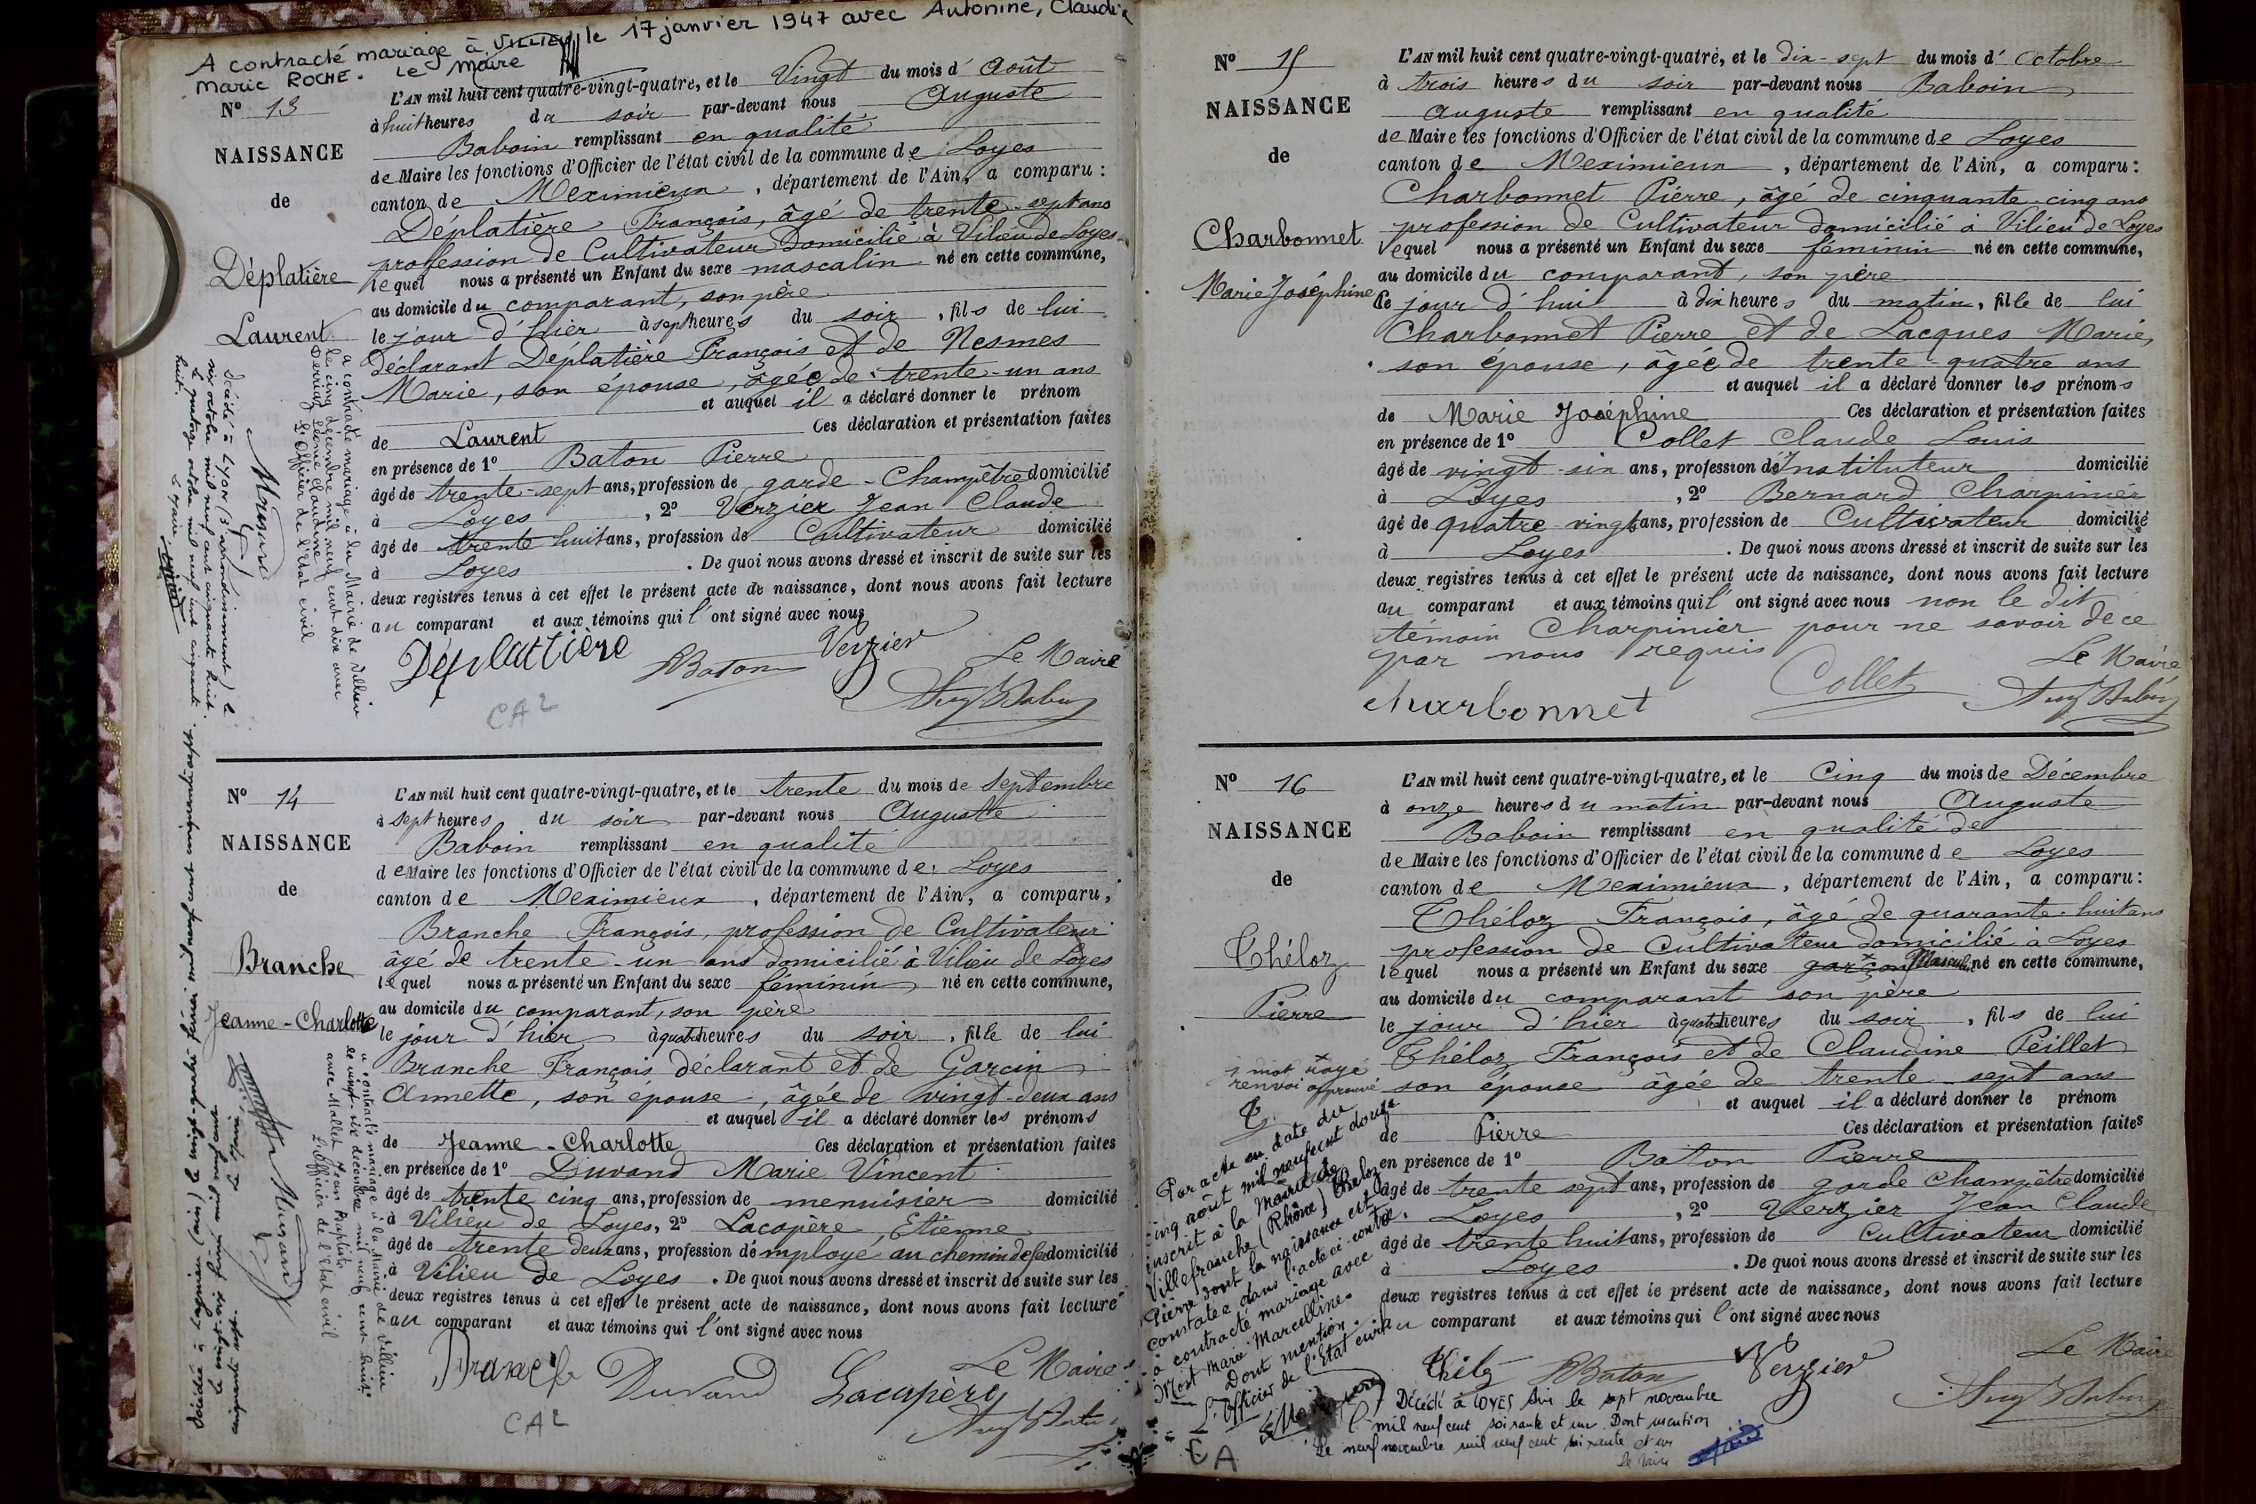 A contracté mariage à VILLIEU le 17 janvier 1947 avec Antonine, Claudia
Marie ROCHE. Le Maire
N° 13
NAISSANCE
de
Déplatière
Laurent
L'AN mil huit cent quatre-vingt-quatre, et le Vingt du mois d' Août
à huit heures du soir par-devant nous Auguste
Baboin remplissant en qualité
de Maire les fonctions d'Officier de l'état civil de la commune de Loyes
canton de Meximieux, département de l'Ain, a comparu :
Déplatière François, âgé de trente-sept ans
profession de Cultivateur domicilié à Vilieu de Loyes
lequel nous a présenté un Enfant du sexe masculin né en cette commune,
au domicile du comparant, son père
le jour d'hier à sept heures du soir, fils de lui
déclarant Déplatière François et de Nesmes
Marie, son épouse, âgée de trente-un ans
et auquel il a déclaré donner le prénom
de Laurent Ces déclaration et présentation faites
en présence de 1° Baton Pierre
âgé de trente-sept ans, profession de garde-Champêtre domicilié
à Loyes, 2° Verzier Jean Claude
âgé de trente huit ans, profession de Cultivateur domicilié
à Loyes. De quoi nous avons dressé et inscrit de suite sur les
deux registres tenus à cet effet le présent acte de naissance, dont nous avons fait lecture
au comparant et aux témoins qui l'ont signé avec nous
Déplattière Baton Verzier Le Maire
CA2
a contracté mariage à la Mairie de Villieu
le cinq décembre mil neuf cent dix avec
Perraz Jeanne Claudine
L'Officier de l'état civil
Décédé à LYON (3e arrondissement) le
six octobre mil neuf cent cinquante huit.
Le quatorze octobre mil neuf cent cinquante
huit. Le Maire
N° 14
NAISSANCE
de
Branche
Jeanne-Charlotte
L'AN mil huit cent quatre-vingt-quatre, et le trente du mois de Septembre
à sept heures du soir par-devant nous Auguste
Baboin remplissant en qualité
de Maire les fonctions d'Officier de l'état civil de la commune de Loyes
canton de Meximieux, département de l'Ain, a comparu,
Branche François, profession de Cultivateur
âgé de trente-un ans domicilié à Vilieu de Loyes
lequel nous a présenté un Enfant du sexe féminin né en cette commune,
au domicile du comparant, son père
le jour d'hier à quatre heures du soir, fille de lui
Branche François déclarant et de Garcin
Annette, son épouse, âgée de vingt-deux ans
et auquel il a déclaré donner les prénoms
de Jeanne-Charlotte Ces déclaration et présentation faites
en présence de 1° Duvand Marie Vincent
âgé de trente cinq ans, profession de menuisier domicilié
à Vilieu de Loyes, 2° Lacapère, Etienne
âgé de trente deux ans, profession d'employé au chemin de fer domicilié
à Vilieu de Loyes. De quoi nous avons dressé et inscrit de suite sur les
deux registres tenus à cet effet le présent acte de naissance, dont nous avons fait lecture
au comparant et aux témoins qui l'ont signé avec nous
Branche Duvand Lacapère Le Maire
CA2
a contracté mariage à la Mairie de Villieu
le vingt-six décembre mil neuf cent huit
avec Mallet Jean Baptiste
L'Officier de l'état civil
Décédée à Lagnieu (Ain) le vingt-quatre février mil neuf cent cinquante sept.
N° 15
NAISSANCE
de
Charbonnet
Marie Joséphine
L'AN mil huit cent quatre-vingt-quatre, et le dix-sept du mois d' Octobre
à trois heures du soir par-devant nous Baboin
Auguste remplissant en qualité
de Maire les fonctions d'Officier de l'état civil de la commune de Loyes
canton de Meximieux, département de l'Ain, a comparu :
Charbonnet Pierre, âgé de cinquante-cinq ans
profession de Cultivateur domicilié à Vilieu de Loyes
lequel nous a présenté un Enfant du sexe féminin né en cette commune,
au domicile du comparant, son père
le jour d'hui à dix heures du matin, fille de lui
Charbonnet Pierre et de Lacques Marie,
son épouse, âgée de trente-quatre ans
et auquel il a déclaré donner les prénoms
de Marie Joséphine Ces déclaration et présentation faites
en présence de 1° Collet Claude Louis
âgé de vingt-six ans, profession d'Instituteur domicilié
à Loyes, 2° Bernard Charpinier
âgé de quatre vingts ans, profession de Cultivateur domicilié
à Loyes. De quoi nous avons dressé et inscrit de suite sur les
deux registres tenus à cet effet le présent acte de naissance, dont nous avons fait lecture
au comparant et aux témoins qui l'ont signé avec nous non le dit
témoin Charpinier pour ne savoir de ce
par nous requis
Le Maire
charbonnet Collet
N° 16
NAISSANCE
de
Théloz
Pierre
1 mot rayé
renvoi approuvé
L'AN mil huit cent quatre-vingt-quatre, et le Cinq du mois de Décembre
à onze heures du matin par-devant nous Auguste
Baboin remplissant en qualité de
de Maire les fonctions d'Officier de l'état civil de la commune de Loyes
canton de Meximieux, département de l'Ain, a comparu :
Théloz François, âgé de quarante-huit ans
profession de Cultivateur domicilié à Loyes
lequel nous a présenté un Enfant du sexe garçon Masculin né en cette commune,
au domicile du comparant son père
le jour d'hier à quatre heures du soir, fils de lui
Théloz François et de Claudine Peillet
son épouse âgée de trente-sept ans
et auquel il a déclaré donner le prénom
de Pierre Ces déclaration et présentation faites
en présence de 1° Baton Pierre
âgé de trente sept ans, profession de garde Champêtre domicilié
à Loyes, 2° Verzier Jean Claude
âgé de trente huit ans, profession de Cultivateur domicilié
à Loyes. De quoi nous avons dressé et inscrit de suite sur les
deux registres tenus à cet effet le présent acte de naissance, dont nous avons fait lecture
au comparant et aux témoins qui l'ont signé avec nous
Théloz Baton Verzier Le Maire
Par acte en date du
cinq août mil neuf cent douze
inscrit à la Mairie de
Villefranche (Rhône) Theloz
Pierre dont la naissance est
constatée dans l'acte ci-contre
a contracté mariage avec
Mort Marie Marcelline.
Dont mention.
L'Officier de l'Etat civil
CA
Décédé à LOYES Ain le sept novembre
mil neuf cent soixante et un. Dont mention
Le neuf novembre mil neuf cent soixante et un
Le Maire